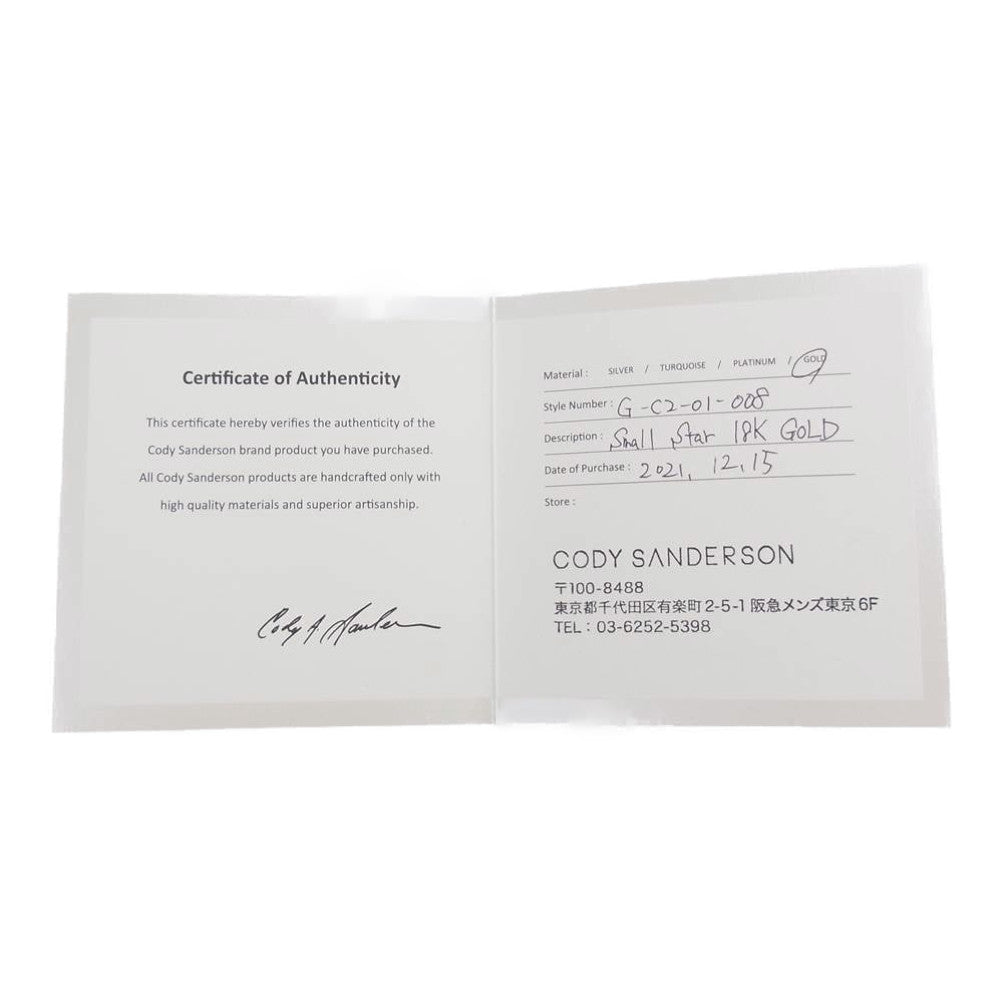 Certificate of Authenticity
This certificate hereby verifies the authenticity of the
Cody Sanderson brand product you have purchased.
All Cody Sanderson products are handcrafted only with
high quality materials and superior artisanship.
Cody A. Sanderson
Material : SILVER / TURQUOISE / PLATINUM / GOLD
Style Number : G-C2-01-008
Description : Small Star 18K GOLD
Date of Purchase : 2021, 12, 15
Store :
CODY SANDERSON
〒100-8488
東京都千代田区有楽町2-5-1 阪急メンズ東京6F
TEL : 03-6252-5398